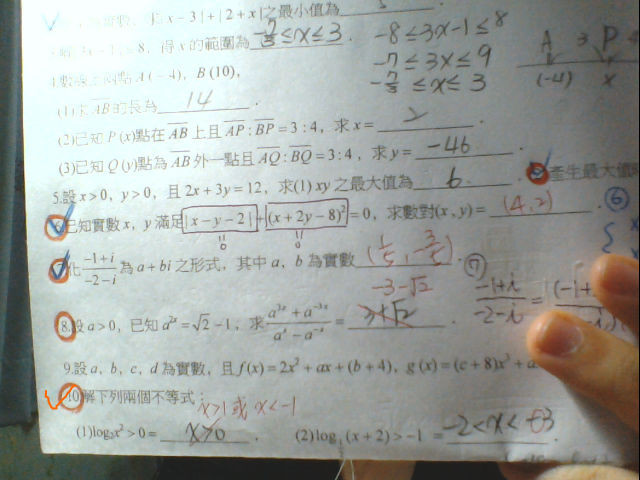 實數, 求|x−3|+|2+x|之最小值為 5
|3x−1|≤8, 得x的範圍為 -7/3≤x≤3. -8≤3x-1≤8
-7≤3x≤9
-7/3≤x≤3
A 3 P
(-4) x
數線上兩點A(−4), B(10),
(1)求AB的長為 14.
(2)已知P(x)點在AB上且AP:BP=3:4, 求x= 2
(3)已知Q(y)點為AB外一點且AQ:BQ=3:4, 求y= -46
5.設x>0, y>0, 且2x+3y=12, 求(1) xy之最大值為 6. 產生最大值
已知實數x, y滿足|x−y−2|+(x+2y−8)²=0, 求數對(x, y)= (4,2). ⑥
0 0
7.化 (−1+i)/(−2−i) 為a+bi之形式, 其中a, b為實數 (1/5, -3/5). ⑦
-3-√2 (-1+i)/(-2-i) =
8.設a>0, 已知a²ˣ=√2−1, 求 (a³ˣ+a⁻³ˣ)/(aˣ−a⁻ˣ) = 3+√2.
9.設a, b, c, d為實數, 且f(x)=2x²+ax+(b+4), g(x)=(c+8)x³+
10.解下列兩個不等式:
x>1 或 x<-1
(1)log₃x²>0= x>0. (2)log (x+2)>−1 = -2<x<